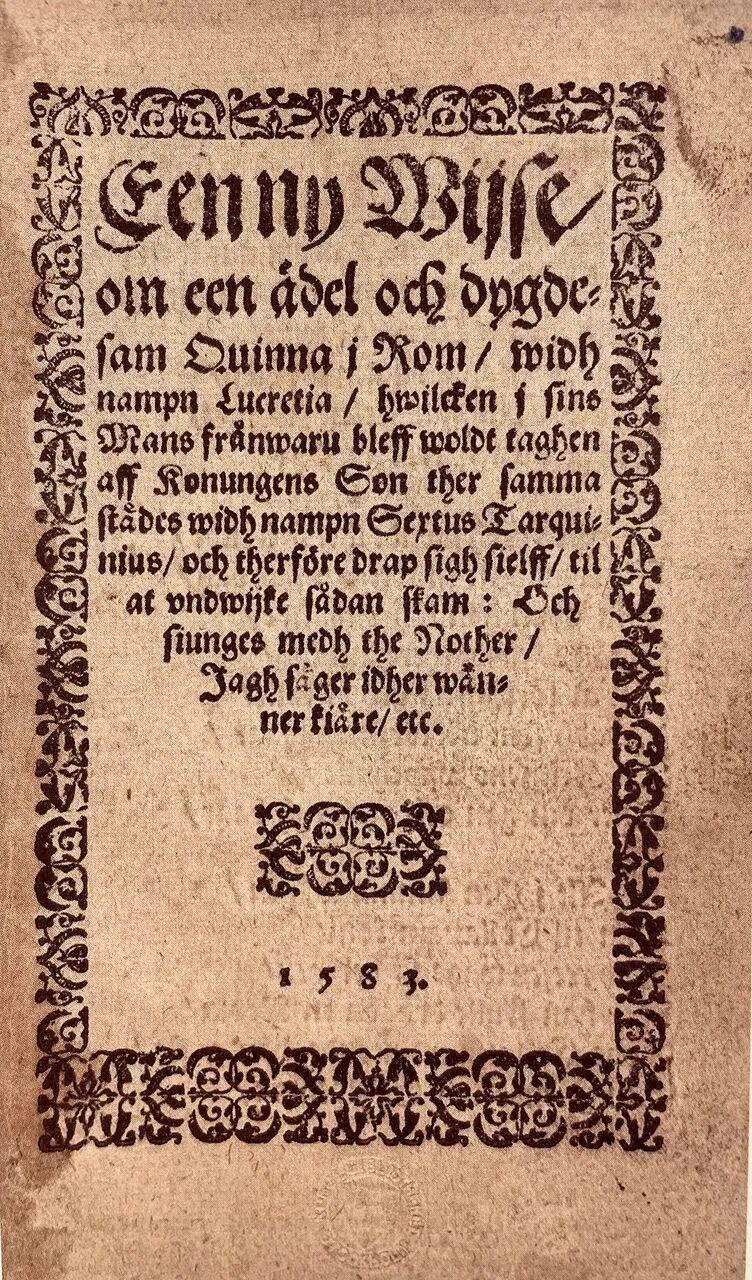 Een ny Wijse/
om een ädel och dygde-
sam Quinna j Rom/ widh
nampn Lucretia/ hwilcken j sins
Mans frånwaru bleff woldt taghen
aff Konungens Son ther samma
städes widh nampn Sextus Tarqui-
nius/ och therföre drap sigh sielff/ til
at vndwijke sådan skam: Och
siunges medh the Nother/
Jagh säger idher wän-
ner kiäre/ etc.
1583.